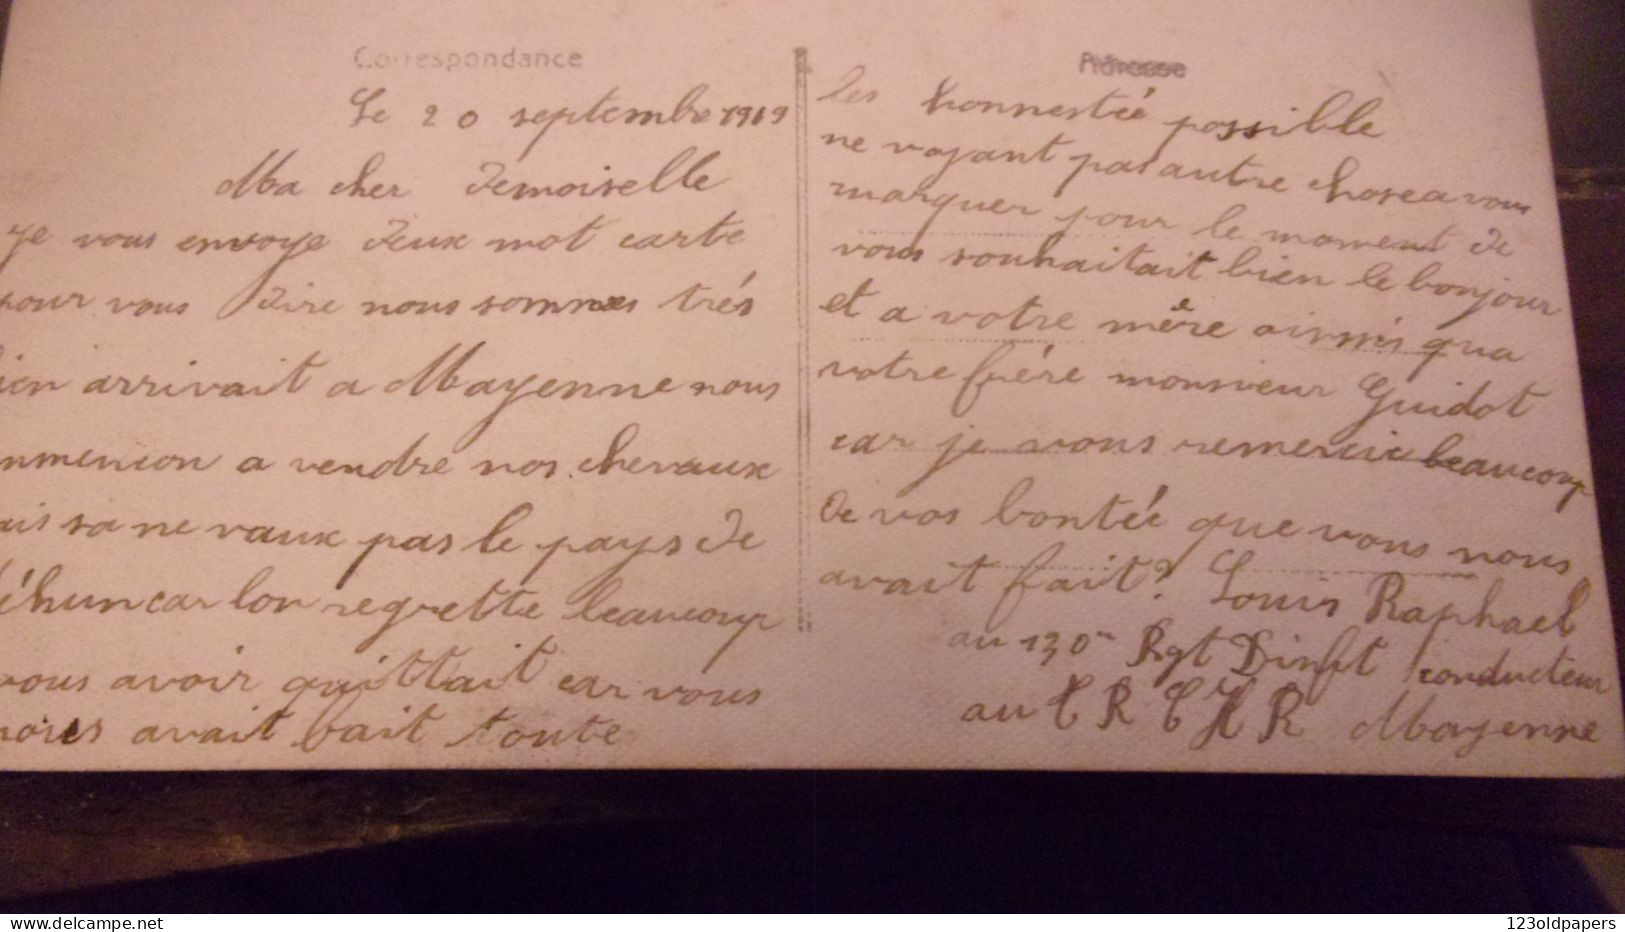 Correspondance
Le 20 septembre 1919
Ma cher demoiselle
je vous envoye deux mot carte
pour vous dire nous sommes trés
ien arrivait a Mayenne nous
mmencon a vendre nos chevaux
ais sa ne vaux pas le pays de
éhun car lon regrette beaucoup
vous avoir quittait car vous
nous avait fait toute
Adresse
les honnestéé possible
ne voyant pas autre chose a vous
marquer pour le moment de
vous souhaitait bien le bonjour
et a votre mére ainsis qua
votre frére monsieur Guidot
car je vous remercie beaucoup
de vos bontéé que vous nous
avait fait? Louis Raphael
au 130me Rgt Dinft conducteur
au C R C H R Mayenne
123oldpapers